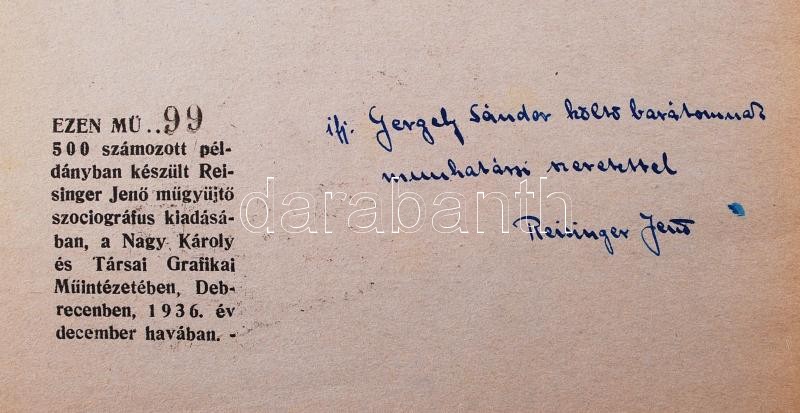 EZEN MŰ..99
500 számozott pél-
dányban készült Rei-
singer Jenő műgyüjtő
szociográfus kiadásá-
ban, a Nagy Károly
és Társai Grafikai
Műintézetében, Deb-
recenben, 1936. év
december havában. -
ifj. Gergely Sándor költő barátomnak
munkatársi szeretettel
Reisinger Jenő
darabanth.com